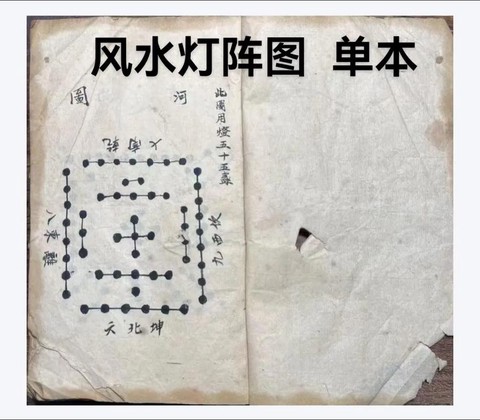 风水灯阵图 单本
此圖用燈五十五盞
河圖
乾南
離東八
坎西九
坤北